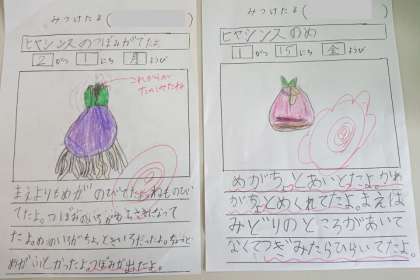 みつけたよ(
ヒヤシンスのつぼみがでたよ
2がつ1にち月ようび
これからが
たのしみだね
まえよりもめがのびてたよ。ねものび
てたよ。つぼみのいちがむらさきになって
たよ。めのいちがちょっときいろだったよ。ちょうど
めがふとしかったよ。つぼみが出たよ。
みつけたよ(
ヒヤシンスのめ
1がつ15にち金ようび
めがちょっとあいてたよ。かわ
がちょっとめくれてたよ。まえは
みどりのところがあいて
なくてつぎみたらひらいてたよ